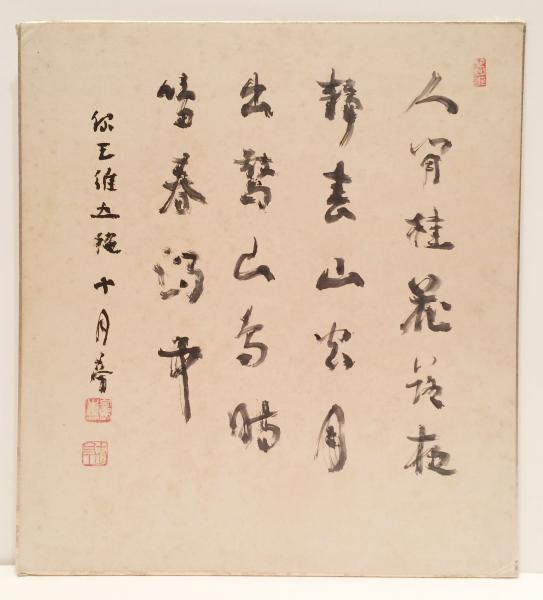 人間桂花落夜
静春山空月
出驚山鳥時
鳴春澗中
王維五絶 十月